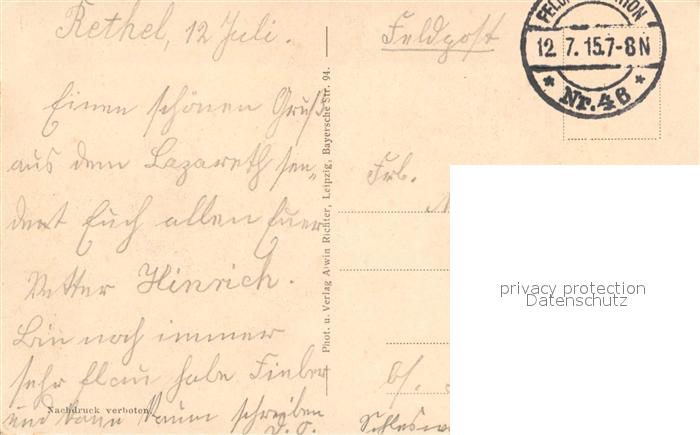 Rethel, 12 Juli.
Einen schönen Gruß
aus dem Lazareth sen-
det Euch allen Euer
Vetter Hinrich.
Bin noch immer
sehr flau habe Fieber
und kann kaum schreiben
D. O.
Nachdruck verboten.
Phot. u. Verlag Alwin Richter, Leipzig, Bayersche Str. 94.
Feldpost
12. 7. 15. 7-8 N
* Nr. 46 *
Frl.
Schlesw
privacy protection
Datenschutz